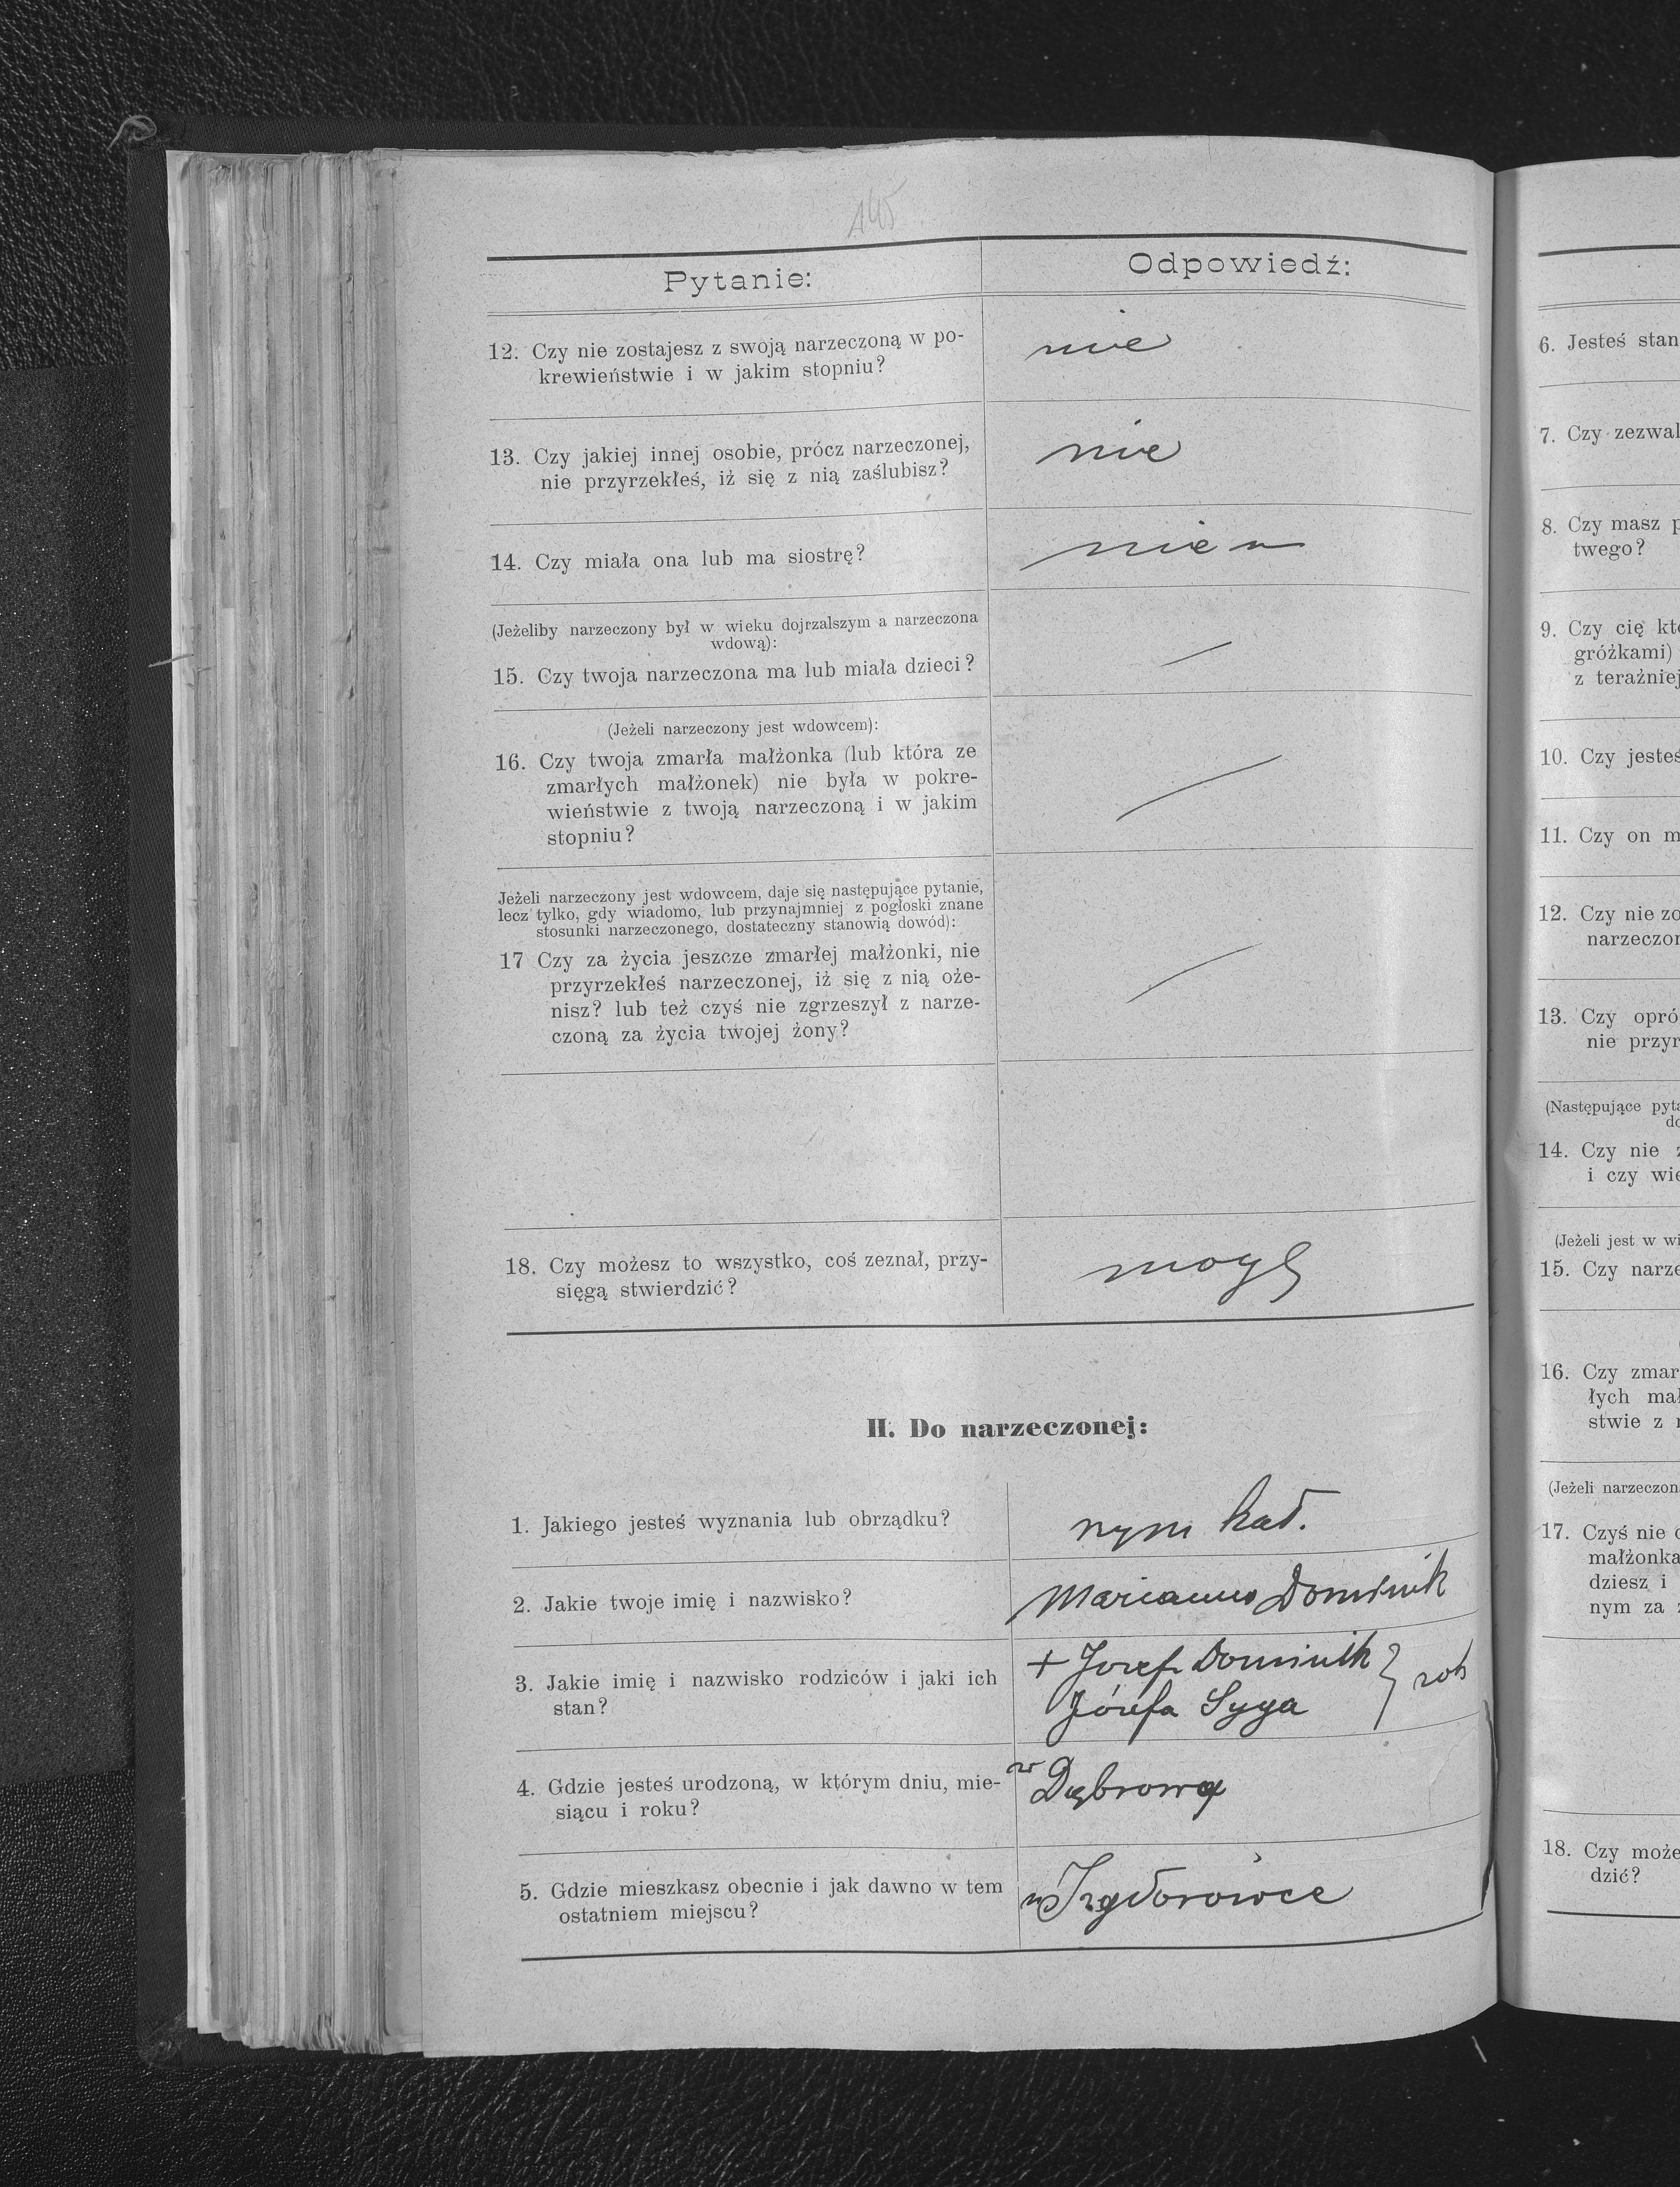 145
Pytanie:
Odpowiedź:
12. Czy nie zostajesz z swoją narzeczoną w po-
krewieństwie i w jakim stopniu?
nie
13. Czy jakiej innej osobie, prócz narzeczonej,
nie przyrzekłeś, iż się z nią zaślubisz?
nie
14. Czy miała ona lub ma siostrę?
(Jeżeliby narzeczony był w wieku dojrzalszym a narzeczona
wdową):
15. Czy twoja narzeczona ma lub miała dzieci?
(Jeżeli narzeczony jest wdowcem):
16. Czy twoja zmarła małżonka (lub która ze
zmarłych małżonek) nie była w pokre-
wieństwie z twoją narzeczoną i w jakim
stopniu?
Jeżeli narzeczony jest wdowcem, daje się następujące pytanie,
lecz tylko, gdy wiadomo, lub przynajmniej z pogłoski znane
stosunki narzeczonego, dostateczny stanowią dowód):
17 Czy za życia jeszcze zmarłej małżonki, nie
przyrzekłeś narzeczonej, iż się z nią oże-
nisz? lub też czyś nie zgrzeszył z narze-
czoną za życia twojej żony?
18. Czy możesz to wszystko, coś zeznał, przy-
sięgą stwierdzić?
mogę
II. Do narzeczonej:
1. Jakiego jesteś wyznania lub obrządku?
rzym kat.
2. Jakie twoje imię i nazwisko?
Marianna Dominik
3. Jakie imię i nazwisko rodziców i jaki ich
stan?
+ Jozef Dominik
Józefa Syga
rob
4. Gdzie jesteś urodzoną, w którym dniu, mie-
siącu i roku?
w Dąbrową
5. Gdzie mieszkasz obecnie i jak dawno w tem
ostatniem miejscu?
w Izydorówce
6. Jesteś stan
7. Czy zezwal
8. Czy masz p
twego?
9. Czy cię kto
gróżkami)
z teraźniej
10. Czy jesteś
11. Czy on m
12. Czy nie zo
narzeczon
13. Czy opró
nie przyr
(Następujące pyta
do
14. Czy nie z
i czy wie
(Jeżeli jest w wi
15. Czy narze
16. Czy zmar
łych mał
stwie z n
(Jeżeli narzeczon
17. Czyś nie o
małżonka
dziesz i
nym za ż
18. Czy może
dzić?